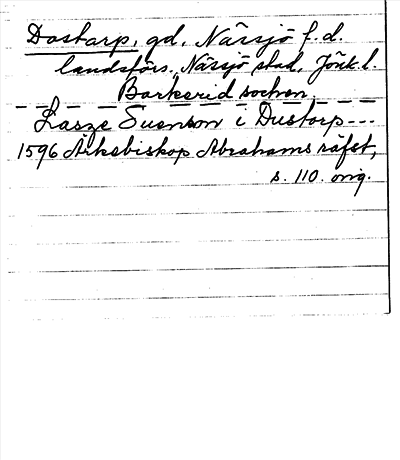 Dostarp, gd, Nässjö f.d.
landsförs. Nässjö stad, Jönk.l.
Barkerid socken.
Lasze Suenson i Dustorp---
1596 Ärkebiskop Abrahams räfst,
s. 110. orig.